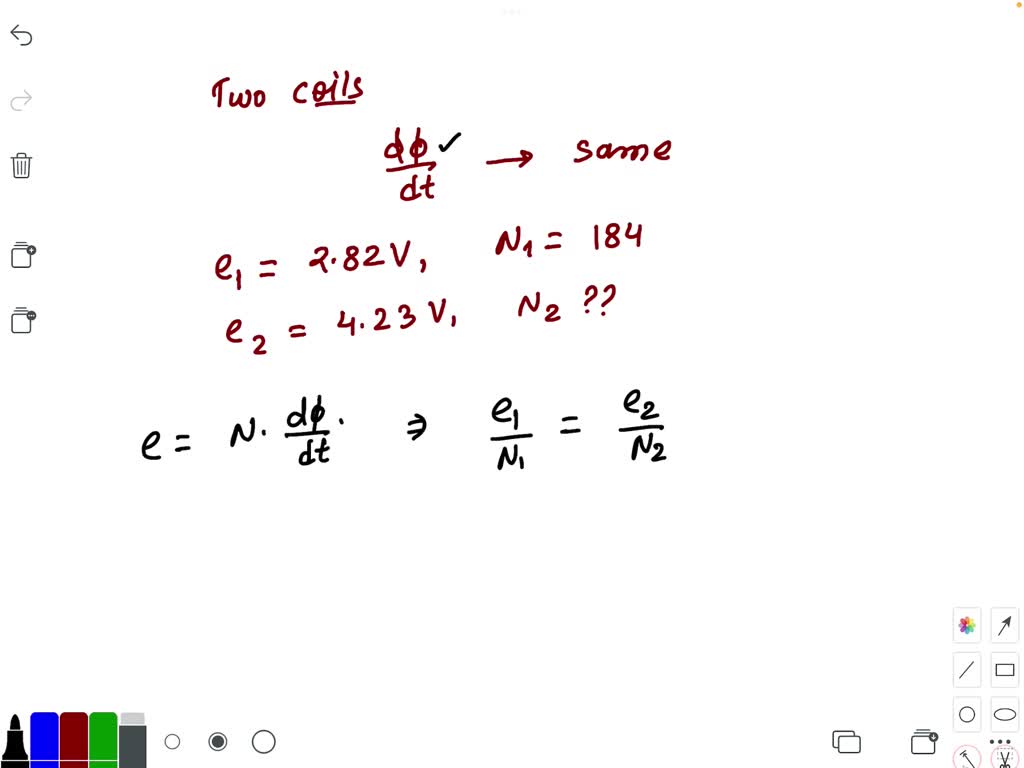 Two coils
dϕ/dt ✓ → same
e₁ = 2.82 V, N₁ = 184
e₂ = 4.23 V, N₂ ??
e = N. dϕ/dt. ⇒ e₁/N₁ = e₂/N₂